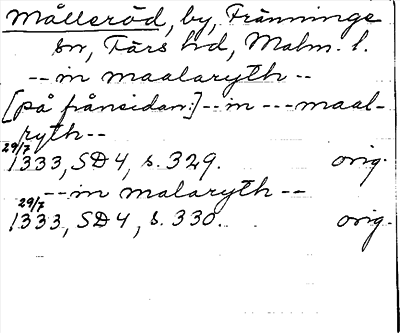 Målleröd, by, Fränninge
sn, Färs hd, Malm. l.
-- in maalaryth --
[på frånsidan:] -- in --- maal-
ryth --
29/7
1333, SD 4, s. 329. orig.
-- in malaryth --
29/7
1333, SD 4, s. 330. orig.